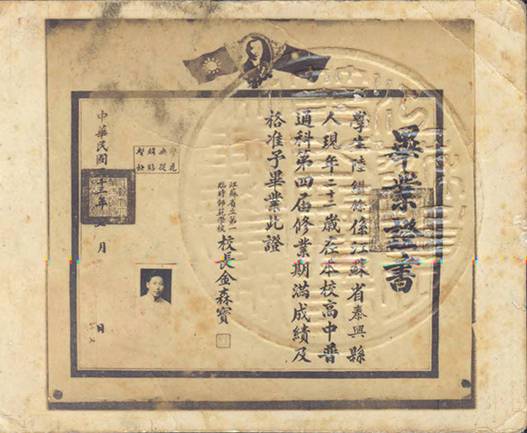 畢業證書
學生陸 係江蘇省泰興縣
人現年 歲在本校高中普
通科第四屆修業期滿成績及
格准予畢業此證
江蘇省立第一
臨時師範學校
校長金森寶
無從
購貼
暫
中華民國 十三年 月
日